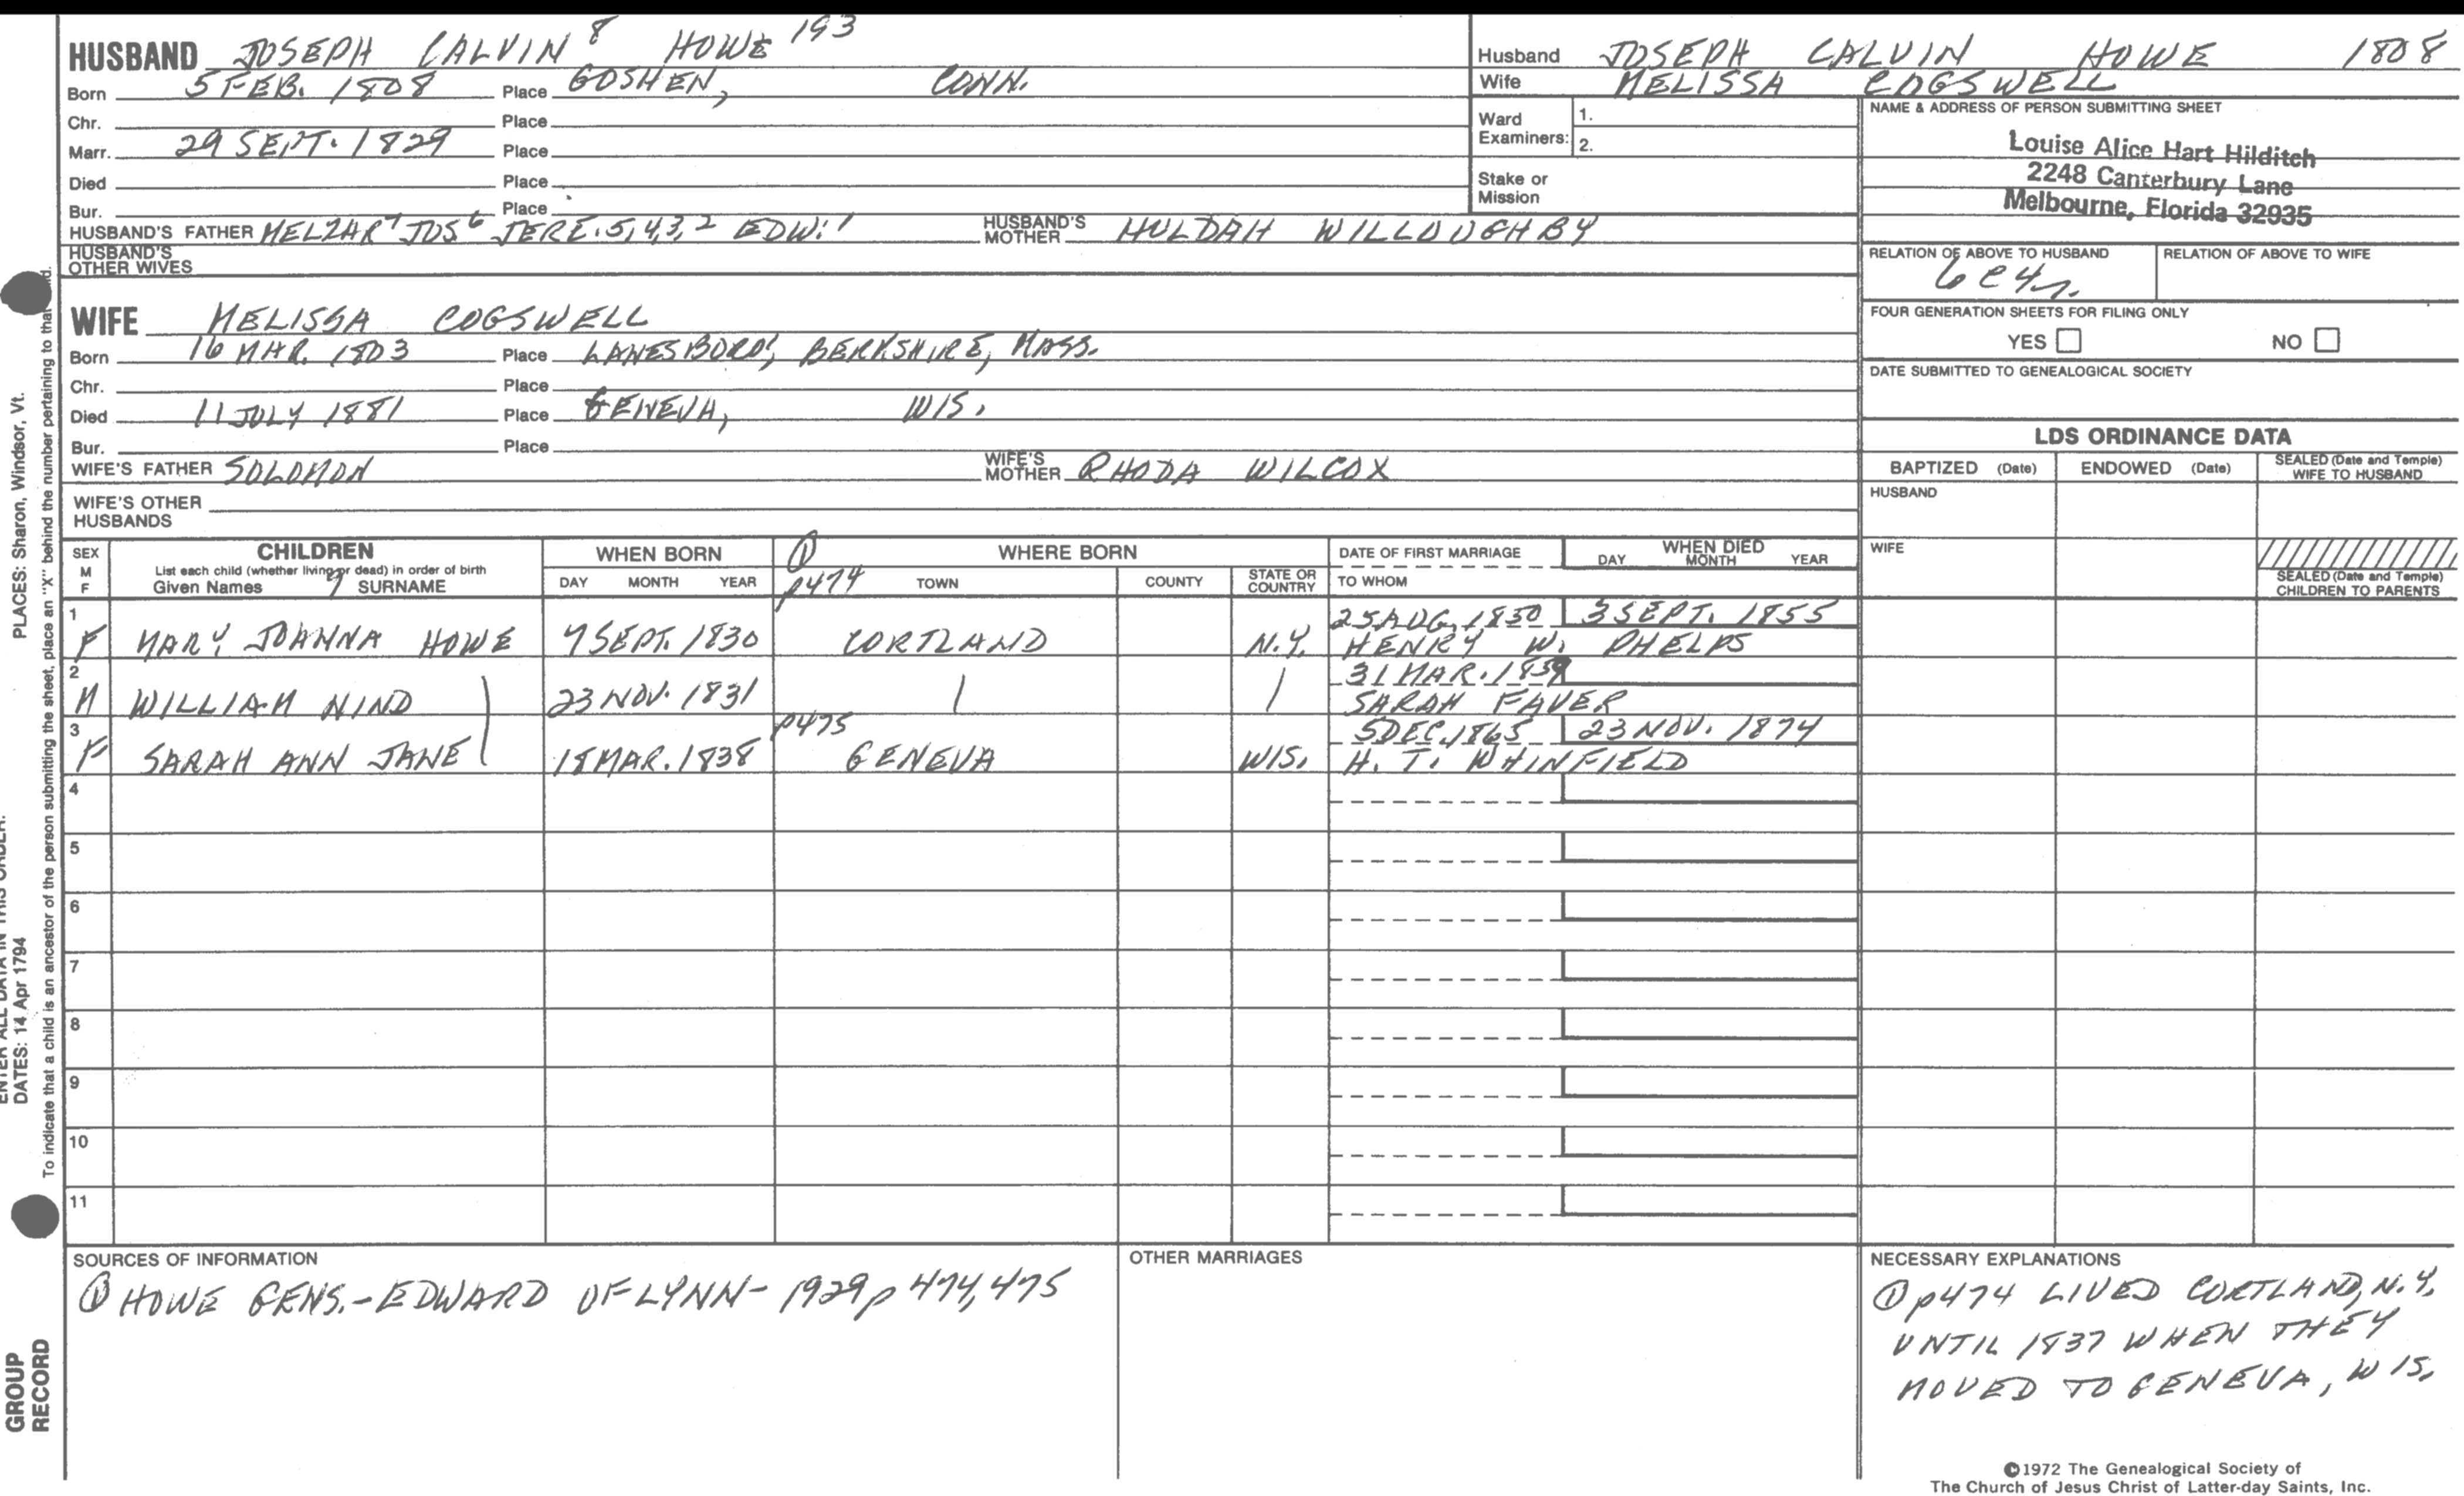 HUSBAND JOSEPH CALVIN 8 HOWE 193
Born 5 FEB. 1808 Place GOSHEN, CONN.
Chr. Place
Marr. 29 SEPT. 1829 Place
Died Place
Bur. Place
HUSBAND'S FATHER MELZAR 7 JOS 6 JERE. 5, 4, 3, 2 EDW. 1 HUSBAND'S MOTHER HULDAH WILLOUGHBY
HUSBAND'S OTHER WIVES
Husband JOSEPH CALVIN HOWE 1808
Wife MELISSA COGSWELL
Ward Examiners: 1.
2.
Stake or Mission
NAME & ADDRESS OF PERSON SUBMITTING SHEET
Louise Alice Hart Hilditch
2248 Canterbury Lane
Melbourne, Florida 32935
RELATION OF ABOVE TO HUSBAND RELATION OF ABOVE TO WIFE
6C4r.
FOUR GENERATION SHEETS FOR FILING ONLY
YES NO
DATE SUBMITTED TO GENEALOGICAL SOCIETY
WIFE MELISSA COGSWELL
Born 16 MAR. 1803 Place LANESBORO, BERKSHIRE, MASS.
Chr. Place
Died 11 JULY 1881 Place GENEVA, WIS.
Bur. Place
WIFE'S FATHER SOLOMON WIFE'S MOTHER RHODA WILCOX
WIFE'S OTHER HUSBANDS
LDS ORDINANCE DATA
BAPTIZED (Date) ENDOWED (Date) SEALED (Date and Temple) WIFE TO HUSBAND
HUSBAND
WIFE
SEALED (Date and Temple) CHILDREN TO PARENTS
SEX M F CHILDREN WHEN BORN ① WHERE BORN DATE OF FIRST MARRIAGE WHEN DIED
List each child (whether living or dead) in order of birth DAY MONTH YEAR
Given Names 9 SURNAME DAY MONTH YEAR p474 TOWN COUNTY STATE OR COUNTRY TO WHOM
1 25 AUG. 1850 3 SEPT. 1855
F MARY JOANNA HOWE 7 SEPT. 1830 CORTLAND N.Y. HENRY W. PHELPS
2 31 MAR. 1859
M WILLIAM NIND 23 NOV. 1831 SARAH FAVER
3 p475 5 DEC. 1865 23 NOV. 1874
F SARAH ANN JANE 18 MAR. 1838 GENEVA WIS. H. T. WHINFIELD
4
5
6
7
8
9
10
11
SOURCES OF INFORMATION
① HOWE GENS. - EDWARD OF LYNN - 1929 p 474, 475
OTHER MARRIAGES
NECESSARY EXPLANATIONS
① p474 LIVED CORTLAND, N.Y.
UNTIL 1837 WHEN THEY
MOVED TO GENEVA, WIS.
©1972 The Genealogical Society of
The Church of Jesus Christ of Latter-day Saints, Inc.
PLACES: Sharon, Windsor, Vt.
DATES: 14 Apr 1794
To indicate that a child is an ancestor of the person submitting the sheet, place an "X" behind the number pertaining to that
GROUP
RECORD